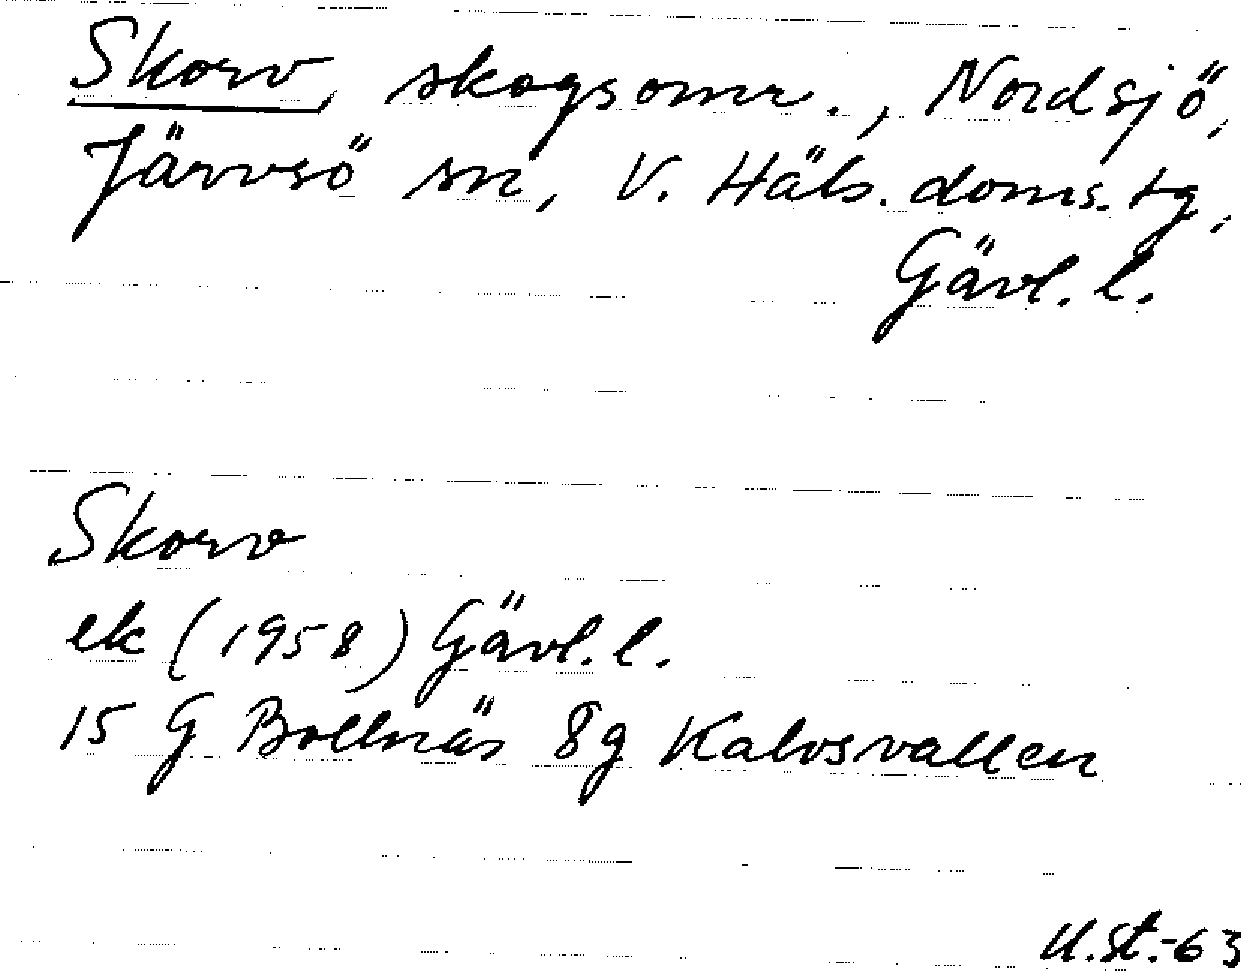 Skorv, skogsomr., Nordsjö,
Järvsö sn, V. Häls. doms.tg,
Gävl. l.
Skorv
ek (1958) Gävl. l.
15 G Bollnäs 8g Kalvsvallen
U.St.-63